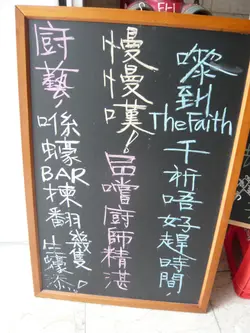 嚟到The Faith千祈唔好趕時間!
慢慢嘆!品嚐廚師精湛
廚藝!喺蠔BAR揀翻幾隻生蠔添!